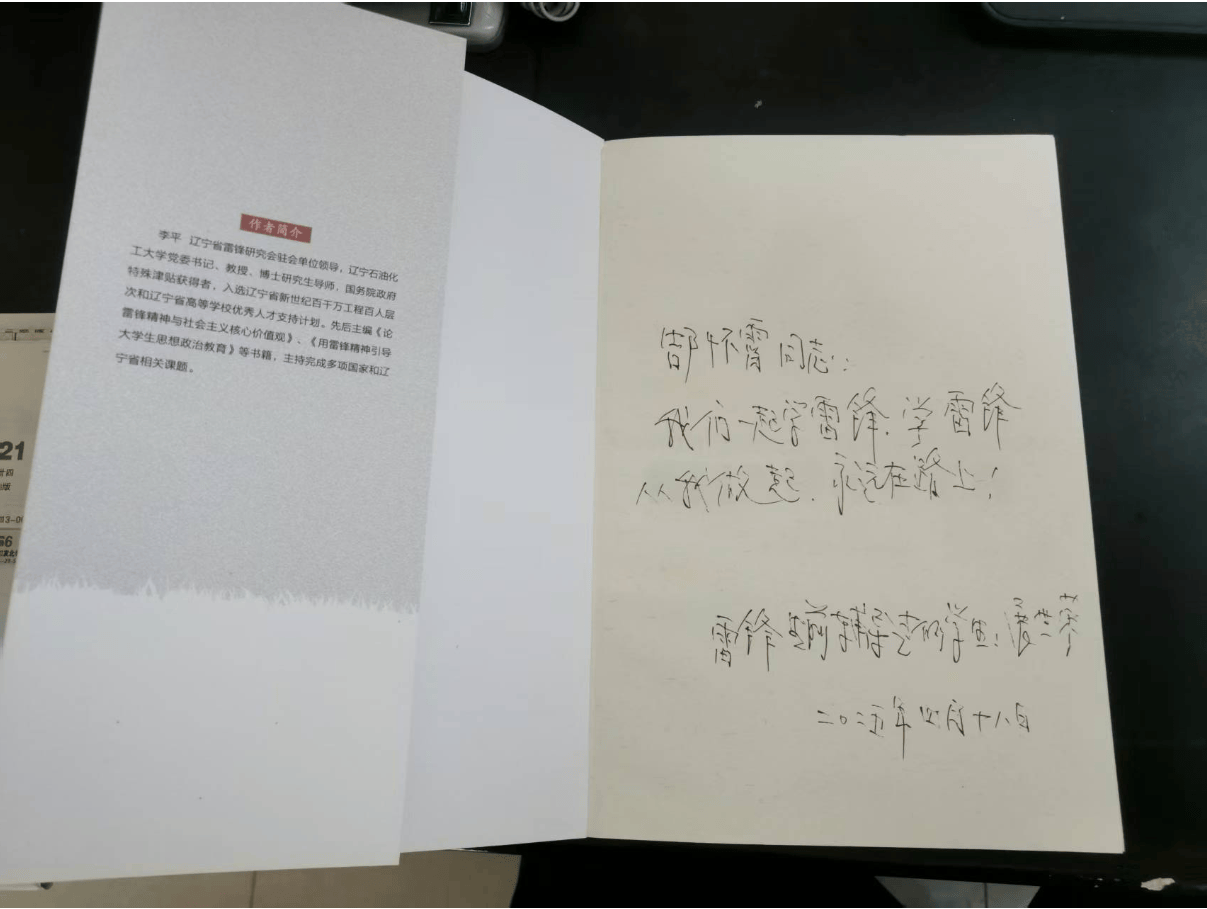 作者简介
李平 辽宁省雷锋研究会驻会单位领导，辽宁石油化
工大学党委书记、教授、博士研究生导师，国务院政府
特殊津贴获得者，入选辽宁省新世纪百千万工程百人层
次和辽宁省高等学校优秀人才支持计划。先后主编《论
雷锋精神与社会主义核心价值观》、《用雷锋精神引导
大学生思想政治教育》等书籍，主持完成多项国家和辽
宁省相关课题。
21
66
怀雷同志：
我们一起学雷锋，学雷锋
从我做起，永远在路上！
雷锋生前辅导过的学生：
二〇二五年四月十八日